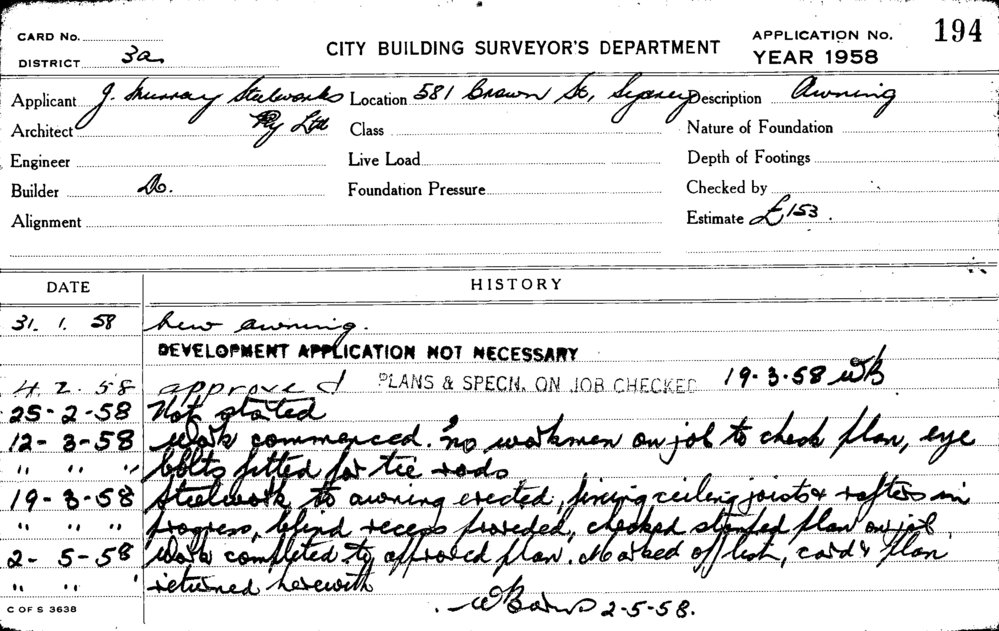 CARD No.
DISTRICT 3a
CITY BUILDING SURVEYOR'S DEPARTMENT
APPLICATION No. 194
YEAR 1958
Applicant J. Murray Steelworks Location 581 Crown St, Sydney Description Awning
Architect Pty Ltd Class Nature of Foundation
Engineer Live Load Depth of Footings
Builder Do. Foundation Pressure Checked by
Alignment Estimate £153.
DATE HISTORY
31. 1. 58 new awning.
DEVELOPMENT APPLICATION NOT NECESSARY
4. 2. 58 approved PLANS & SPECN. ON JOB CHECKED 19-3-58 WB
25-2-58 Not started
12-3-58 Work commenced. no workmen on job to check plan, eye
" " " bolts fitted for tie rods
19-3-58 Steelwork to awning erected, fixing ceiling joists & rafters in
" " " progress, blind recess provided, checked stamped plan on job
2-5-58 Work completed to approved plan. Marked off list, card & plan
" " returned herewith
2-5-58.
C OF S 3638